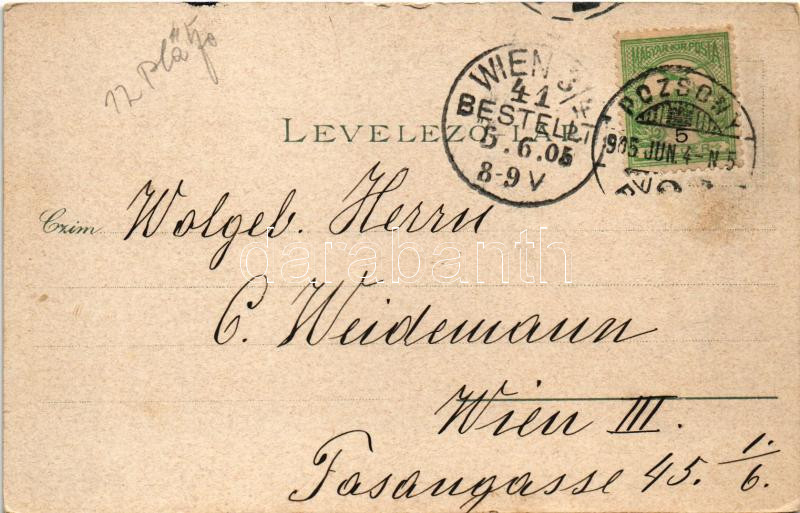 12 Plätze
MAGYAR KIR. POSTA
WIEN 3/4
41
BESTELLT
5.6.05
8-9 V
POZSONY
5
905 JUN 4-N 5
LEVELEZŐ-LAP.
Czim
Wolgeb. Herrn
darabanth
C. Weidemann
Wien III.
Fasangasse 45. 1./6.